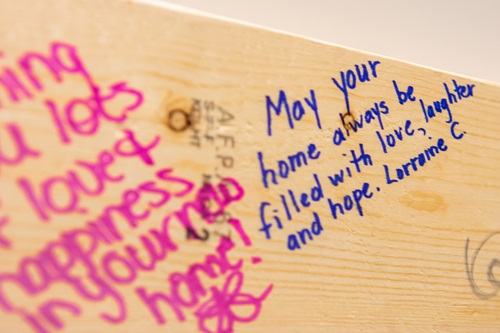 u lots
love &
happiness
in your new
home!
May your
home always be
filled with love, laughter
and hope. Lorraine C.